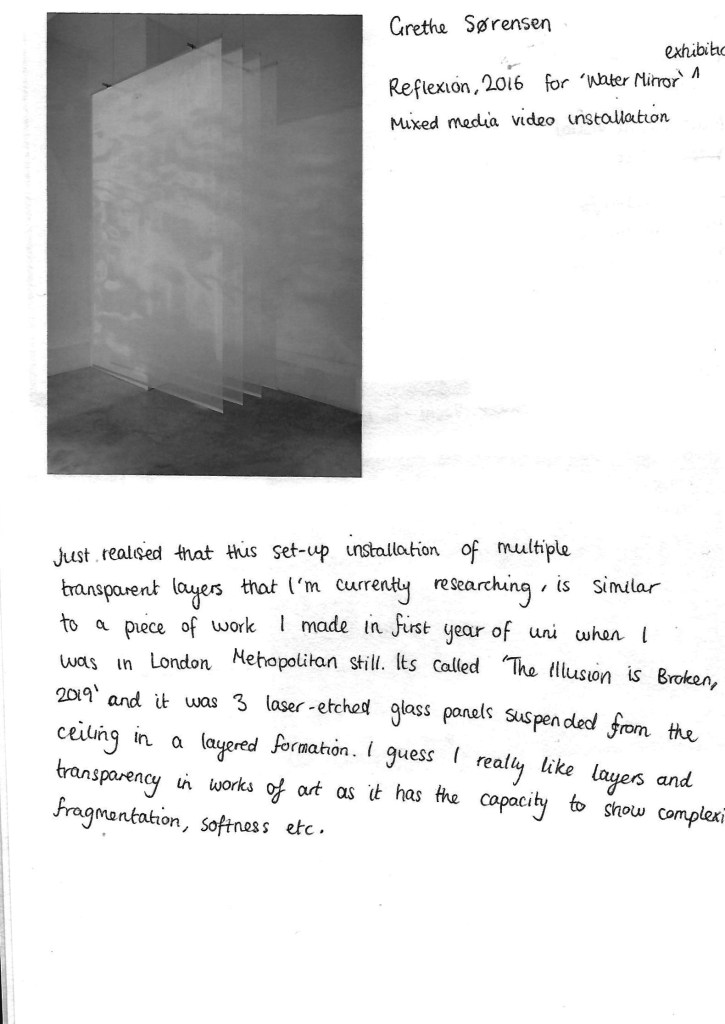 Grethe Sørensen
exhibitio
Reflexion, 2016 for 'Water Mirror' ^
Mixed media video installation
Just realised that this set-up installation of multiple
transparent layers that I'm currently researching, is similar
to a piece of work I made in first year of uni when I
was in London Metropolitan still. Its called 'The Illusion is Broken,
2019' and it was 3 laser-etched glass panels suspended from the
ceiling in a layered formation. I guess I really like layers and
transparency in works of art as it has the capacity to show complexi
fragmentation, softness etc.